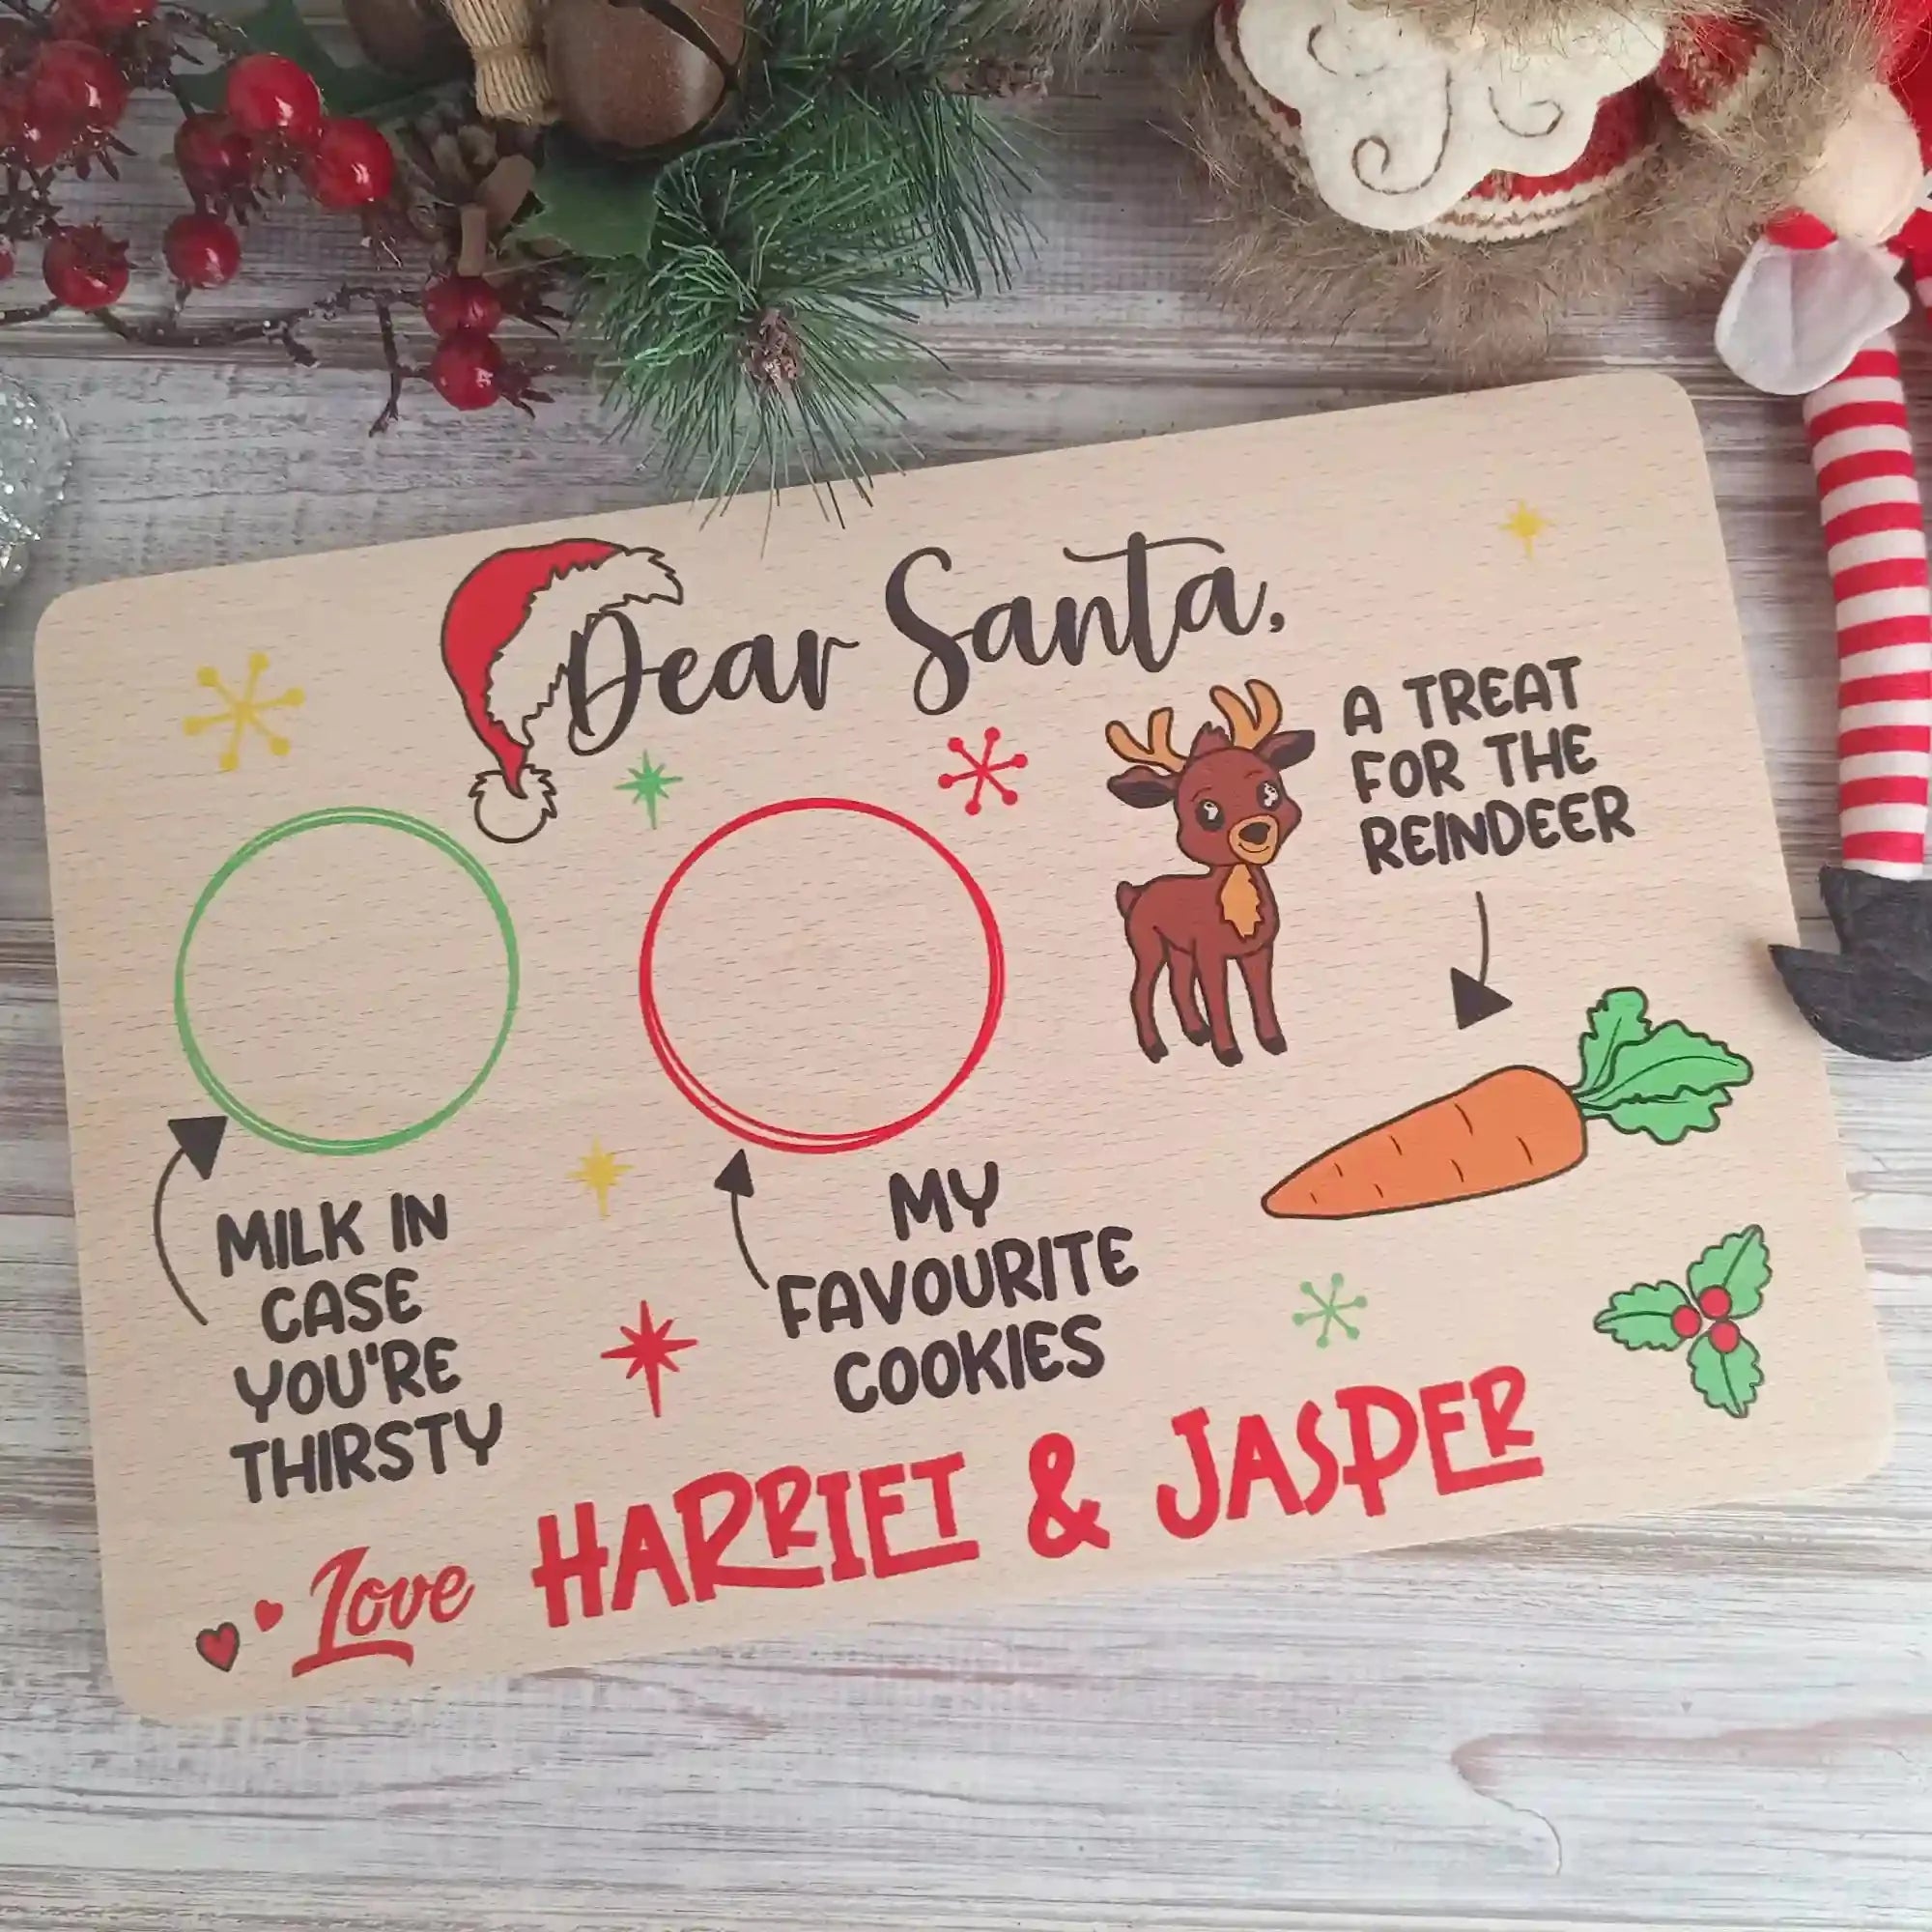 Dear Santa,
A TREAT
FOR THE
REINDEER
MILK IN
CASE
YOU'RE
THIRSTY
MY
FAVOURITE
COOKIES
Love HARRIET & JASPER